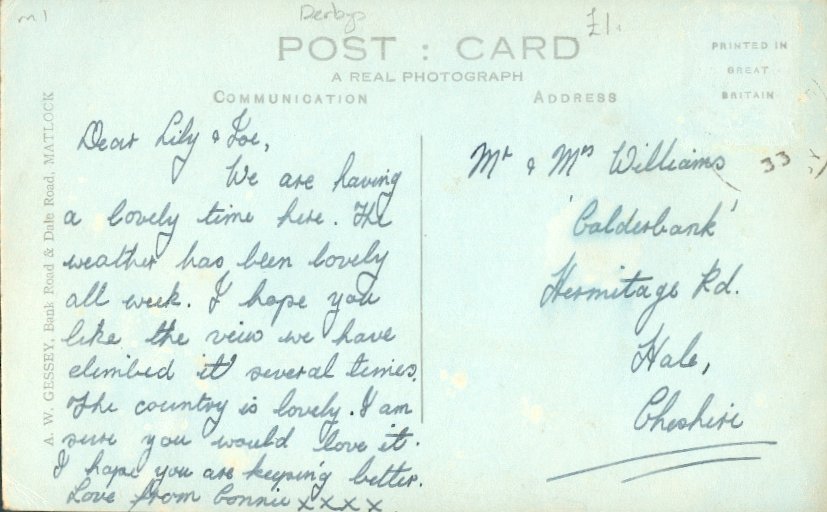 m1
Derbys
£1.
POST : CARD
A REAL PHOTOGRAPH
PRINTED IN
GREAT
BRITAIN
COMMUNICATION
ADDRESS
A. W. GESSEY, Bank Road & Dale Road, MATLOCK
Dear Lily & Joe,
We are having
a lovely time here. The
weather has been lovely
all week. I hope you
like the veiw we have
climbed it several times.
The country is lovely. I am
sure you would love it.
I hope you are keeping better.
Love from Connie xxxx
Mr & Mrs Williams
'Calderbank'
Hermitage Rd.
Hale,
Cheshire
33